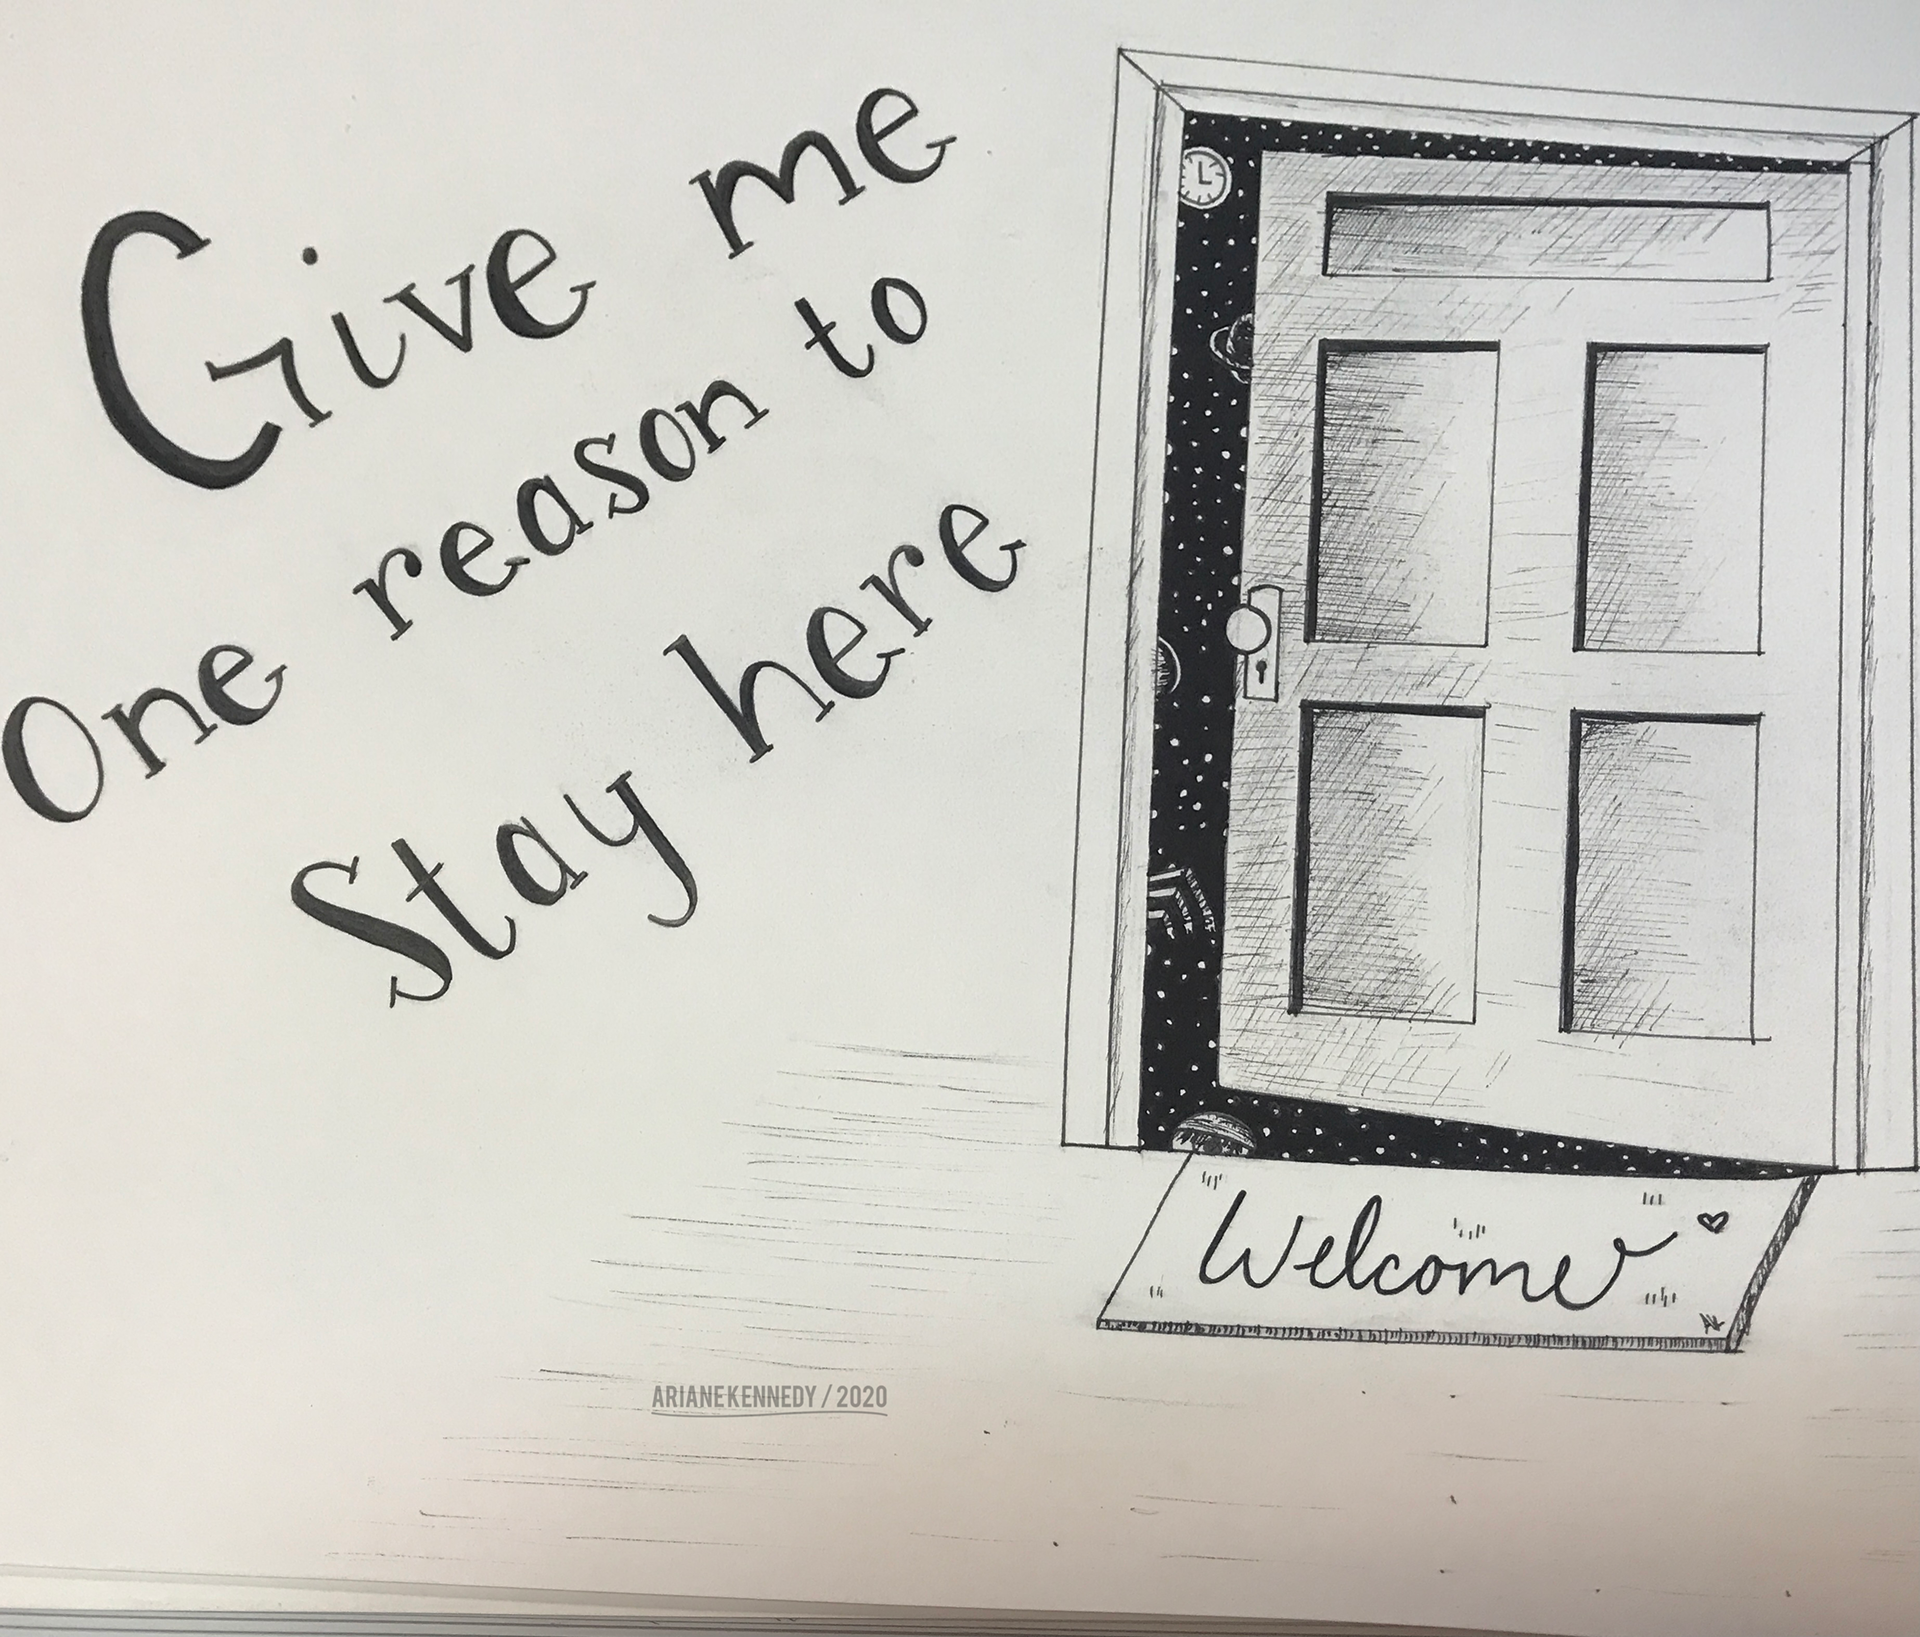 Give me
One reason to
Stay here
Welcome
ARIANEKENNEDY / 2020